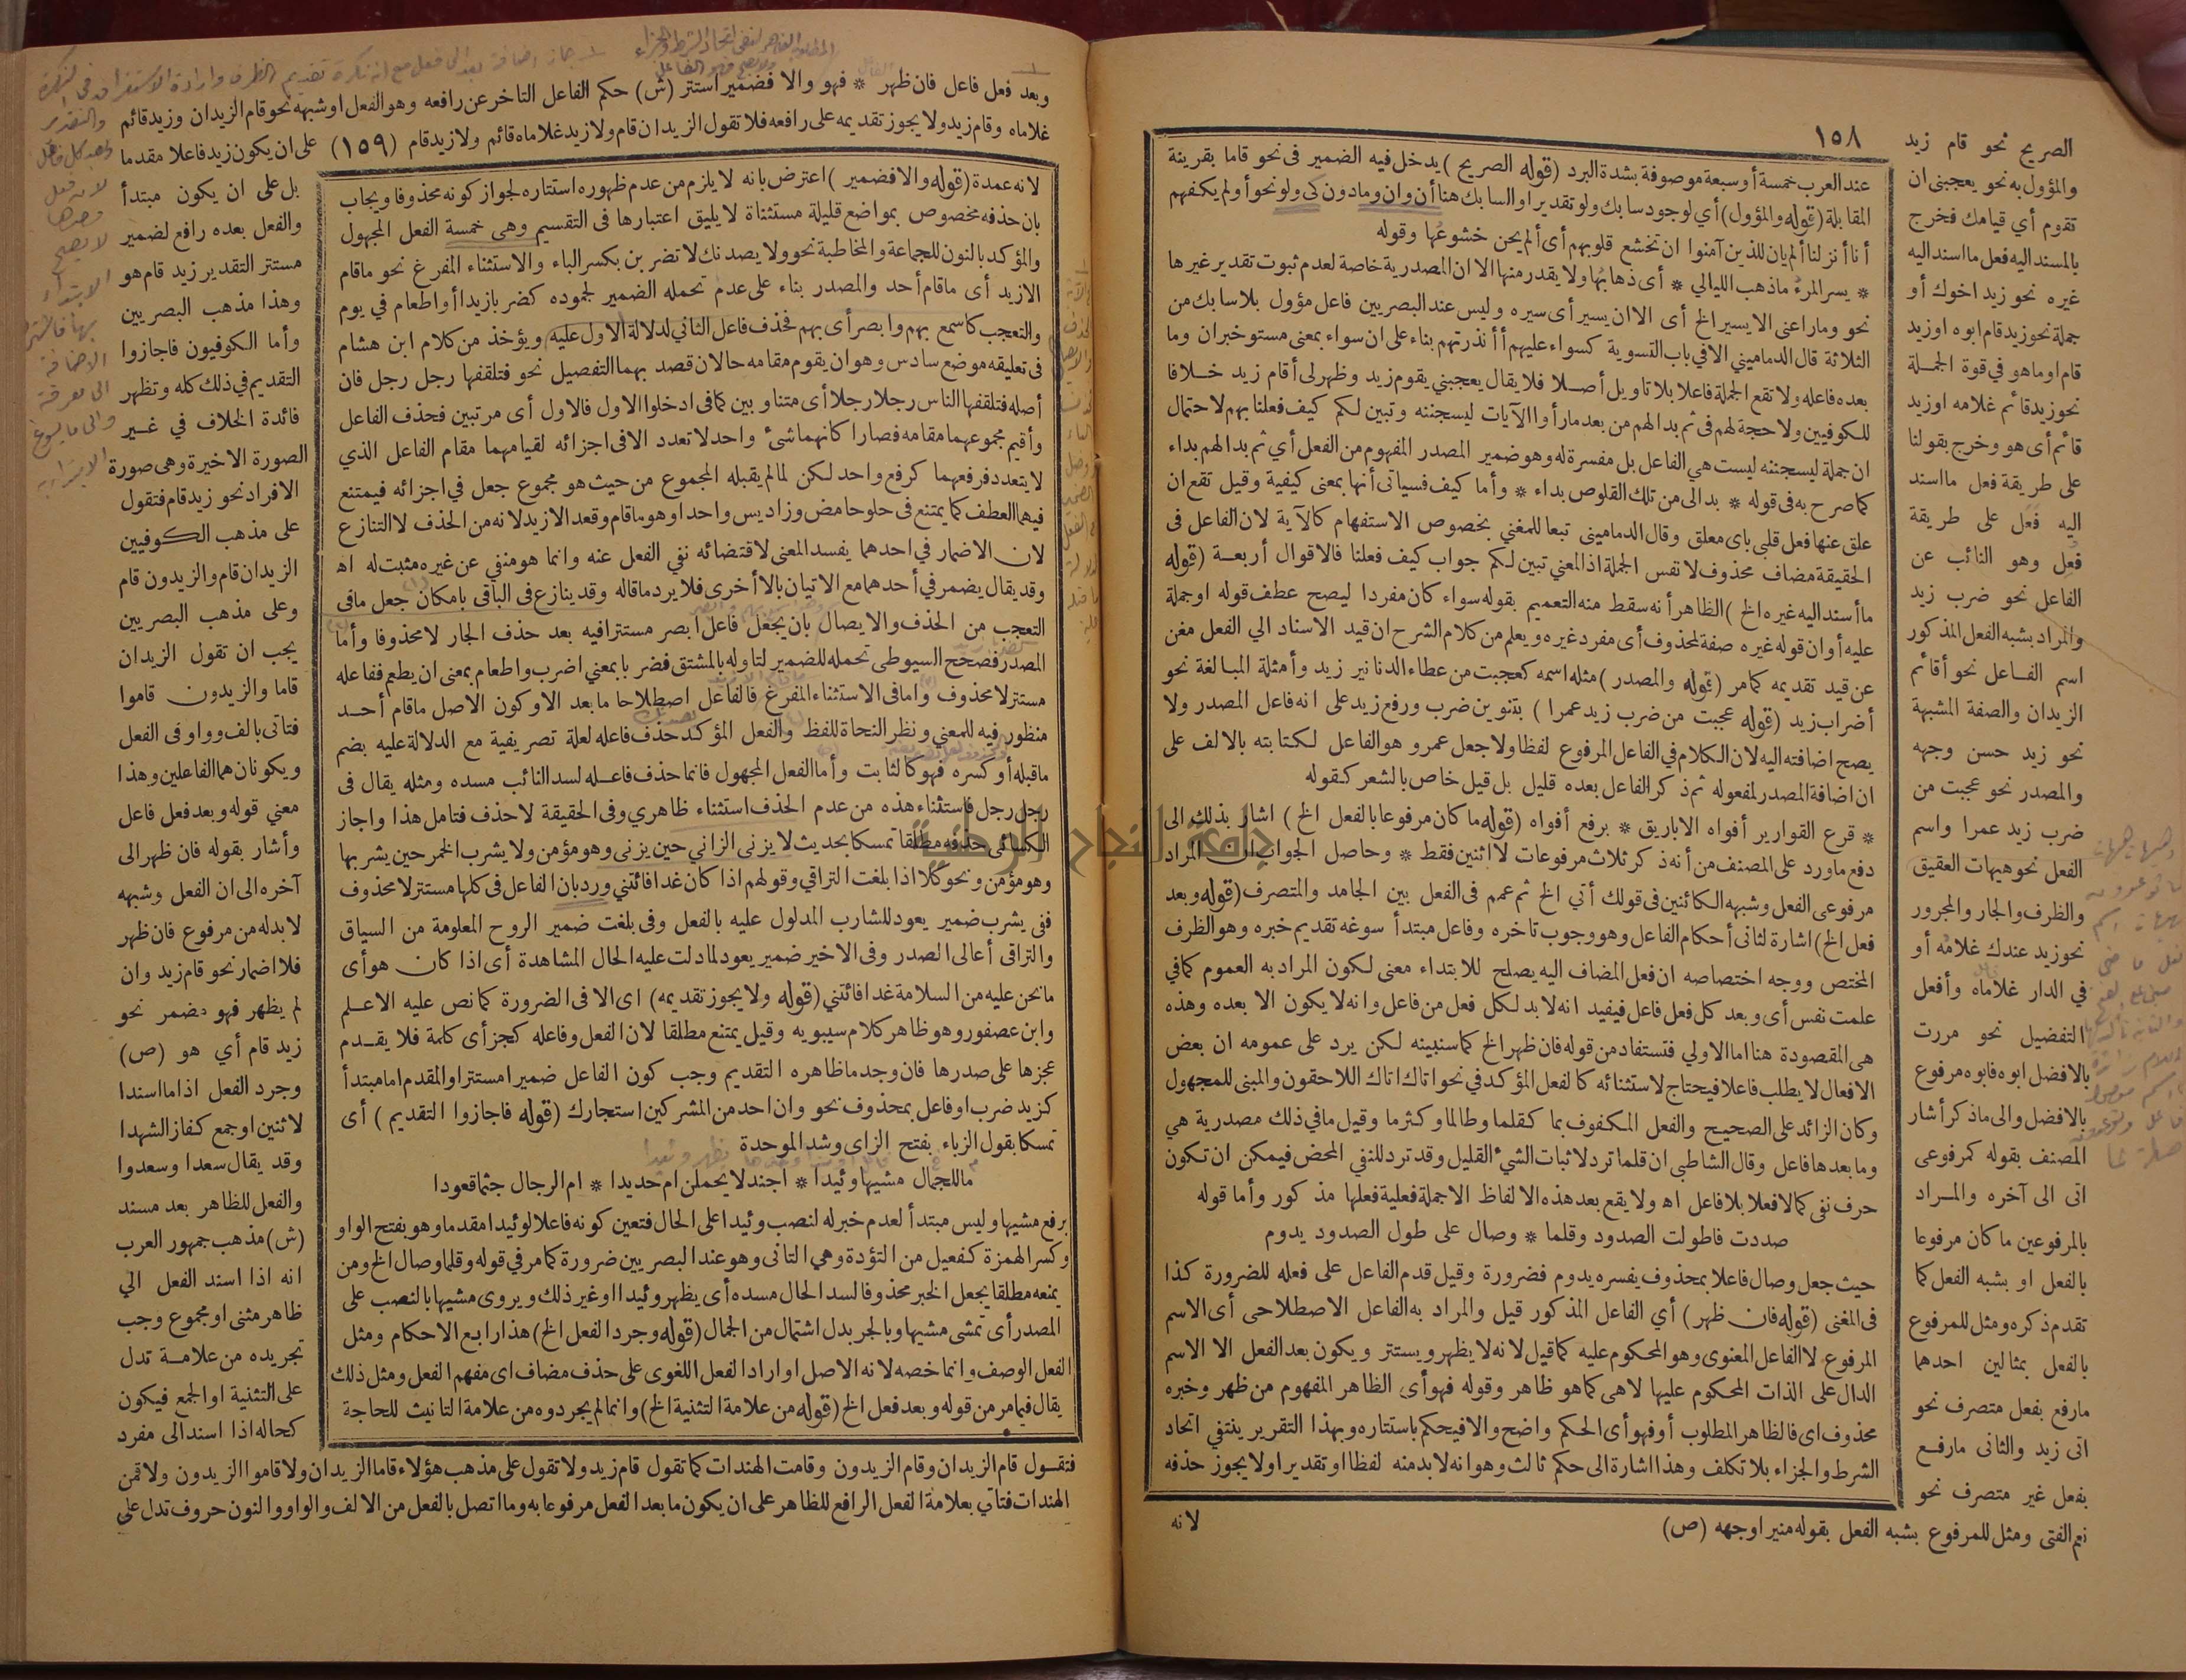 ١٥٨
الصريح نحو قام زيد
والمؤول به نحو يعجبنى ان
تقوم أي قيامك فخرج
بالمسند اليه فعل ما اسند اليه
غيره نحو زيد اخوك أو
جملة نحو زيد قام ابوه اوزيد
قام اوما هو في قوة الجملة
نحو زيد قائم غلامه اوزيد
قائم أى هو وخرج بقولنا
على طريقة فعل ما اسند
اليه فَعَل على طريقة
فُعِل وهو النائب عن
الفاعل نحو ضرب زيد
والمراد بشبه الفعل المذكور
اسم الفاعل نحو أقائم
الزيدان والصفة المشبهة
نحو زيد حسن وجهه
والمصدر نحو عجبت من
ضرب زيد عمرا واسم
الفعل نحو هيهات العقيق
والظرف والجار والمجرور
نحو زيد عندك غلامه أو
في الدار غلاماه وأفعل
التفضيل نحو مررت
بالافضل ابوه فابوه مرفوع
بالافضل والى ماذكر أشار
المصنف بقوله كمرفوعى
اتى الى آخره والمراد
بالمرفوعين ما كان مرفوعا
بالفعل او بشبه الفعل كما
تقدم ذكره ومثل للمرفوع
بالفعل بمثالين احدهما
مارفع بفعل متصرف نحو
اتى زيد والثانى مارفع
بفعل غير متصرف نحو
نعم الفتى ومثل للمرفوع بشبه الفعل بقوله منيرا وجهه (ص)
عند العرب خمسة أو سبعة موصوفة بشدة البرد (قوله الصريح) يدخل فيه الضمير فى نحو قاما بقرينة
المقابلة (قوله والمؤول) أي لوجود سابك ولو تقديرا والسابك هنا أن وان وما دون كى ولو نحو أولم يكفهم
أنا أنزلنا ألم يان للذين آمنوا ان تخشع قلوبهم أى ألم يحن خشوعها وقوله
* يسر المرء ماذهب الليالي * أى ذهابها ولا يقدر منها الا ان المصدرية خاصة لعدم ثبوت تقدير غيرها
نحو وما راعنى الا يسير الخ أى الا ان يسير أى سيره وليس عند البصريين فاعل مؤول بلا سابك من
الثلاثة قال الدماميني الا في باب التسوية كسواء عليهم أأنذرتهم بناء على ان سواء بمعنى مستو خبران وما
بعده فاعله ولا تقع الجملة فاعلا بلا تاويل أصلا فلا يقال يعجبني يقوم زيد وظهر لى أقام زيد خلافا
للكوفيين ولا حجة لهم فى ثم بدا لهم من بعد مارأوا الآيات ليسجننه وتبين لكم كيف فعلنا بهم لاحتمال
ان جملة ليسجننه ليست هي الفاعل بل مفسرة له وهو ضمير المصدر المفهوم من الفعل أي ثم بدا لهم بداء
كما صرح به فى قوله * بدا لى من تلك القلوص بداء * وأما كيف فسياتى أنها بمعنى كيفية وقيل تقع ان
علق عنها فعل قلبى باى معلق وقال الدماميني تبعا للمغني بخصوص الاستفهام كالآية لان الفاعل فى
الحقيقة مضاف محذوف لا نفس الجملة اذ المعني تبين لكم جواب كيف فعلنا فالاقوال أربعة (قوله
ما أسند اليه غيره الخ) الظاهر أنه سقط منه التعميم بقوله سواء كان مفردا ليصح عطف قوله او جملة
عليه أو ان قوله غيره صفة لمحذوف أى مفرد غيره ويعلم من كلام الشرح ان قيد الاسناد الي الفعل مغن
عن قيد تقديمه كما مر (قوله والمصدر) مثله اسمه كعجبت من عطاء الدنانير زيد وأمثلة المبالغة نحو
أضراب زيد (قوله عجبت من ضرب زيد عمرا) بتنوين ضرب ورفع زيد على انه فاعل المصدر ولا
يصح اضافته اليه لان الكلام في الفاعل المرفوع لفظا ولا جعل عمرو هو الفاعل لكتابته بالالف على
ان اضافة المصدر لمفعوله ثم ذكر الفاعل بعده قليل بل قيل خاص بالشعر كقوله
* قرع القوارير أفواه الاباريق * برفع أفواه (قوله ما كان مرفوعا بالفعل الخ) اشار بذلك الى
دفع ماورد على المصنف من أنه ذكر ثلاث مرفوعات لا اثنين فقط * وحاصل الجواب ان المراد
مرفوعى الفعل وشبهه الكائنين فى قولك أتي الخ ثم عمم فى الفعل بين الجامد والمتصرف (قوله وبعد
فعل الخ) اشارة لثانى أحكام الفاعل وهو وجوب تاخره وفاعل مبتدأ سوغه تقديم خبره وهو الظرف
المختص ووجه اختصاصه ان فعل المضاف اليه يصلح للابتداء معنى لكون المراد به العموم كما في
علمت نفس أى وبعد كل فعل فاعل فيفيد انه لا بد لكل فعل من فاعل وانه لا يكون الا بعده وهذه
هى المقصودة هنا اما الاولي فتستفاد من قوله فان ظهر الخ كما سنبينه لكن يرد على عمومه ان بعض
الافعال لا يطلب فاعلا فيحتاج لاستثنائه كالفعل المؤكد في نحو اتاك اتاك اللاحقون والمبنى للمجهول
وكان الزائد على الصحيح والفعل المكفوف بما كقلما وطالما وكثرما وقيل ما في ذلك مصدرية هي
وما بعدها فاعل وقال الشاطبى ان قلما ترد لاثبات الشئ القليل وقد ترد للنفي المحض فيمكن ان تكون
حرف نفى كما لا فعلا بلا فاعل اه ولا يقع بعد هذه الالفاظ الا جملة فعلية فعلها مذكور وأما قوله
صددت فاطولت الصدود وقلما * وصال على طول الصدود يدوم
حيث جعل وصال فاعلا بمحذوف يفسره يدوم فضرورة وقيل قدم الفاعل على فعله للضرورة كذا
فى المغنى (قوله فان ظهر) أي الفاعل المذكور قيل والمراد به الفاعل الاصطلاحى أى الاسم
المرفوع لا الفاعل المعنوى وهو المحكوم عليه كما قيل لانه لا يظهر ويستتر ويكون بعد الفعل الا الاسم
الدال على الذات المحكوم عليها لا هى كما هو ظاهر وقوله فهو أى الظاهر المفهوم من ظهر وخبره
محذوف اى فالظاهر المطلوب أو فهو أى الحكم واضح والا فيحكم باستتاره وبهذا التقرير ينتفي اتحاد
الشرط والجزاء بلا تكلف وهذا اشارة الى حكم ثالث وهو انه لا بد منه لفظا او تقديرا ولا يجوز حذفه
لانه
وبعد فعل فاعل فان ظهر * فهو والا فضمير استتر (ش) حكم الفاعل التاخر عن رافعه وهو الفعل او شبهه نحو قام الزيدان وزيد قائم
غلاماه وقام زيد ولا يجوز تقديمه على رافعه فلا تقول الزيدان قام ولا زيد غلاماه قائم ولا زيد قام (١٥٩) على ان يكون زيد فاعلا مقدما
بل على ان يكون مبتدأ
والفعل بعده رافع لضمير
مستتر التقدير زيد قام هو
وهذا مذهب البصريين
وأما الكوفيون فاجازوا
التقديم في ذلك كله وتظهر
فائدة الخلاف في غير
الصورة الاخيرة وهى صورة
الافراد نحو زيد قام فتقول
على مذهب الكوفيين
الزيدان قام والزيدون قام
وعلى مذهب البصريين
يجب ان تقول الزيدان
قاما والزيدون قاموا
فتاتى بالف وواو في الفعل
ويكونان هما الفاعلين وهذا
معني قوله وبعد فعل فاعل
وأشار بقوله فان ظهر الى
آخره الى ان الفعل وشبهه
لا بد له من مرفوع فان ظهر
فلا اضمار نحو قام زيد وان
لم يظهر فهو مضمر نحو
زيد قام أي هو (ص)
وجرد الفعل اذا ما اسندا
لاثنين او جمع كفاز الشهدا
وقد يقال سعدا وسعدوا
والفعل للظاهر بعد مسند
(ش) مذهب جمهور العرب
انه اذا اسند الفعل الي
ظاهر مثنى او مجموع وجب
تجريده من علامة تدل
على التثنية او الجمع فيكون
كحاله اذا اسند الى مفرد
لانه عمدة (قوله والا فضمير) اعترض بانه لا يلزم من عدم ظهوره استتاره لجواز كونه محذوفا ويجاب
بان حذفه مخصوص بمواضع قليلة مستثناة لا يليق اعتبارها فى التقسيم وهى خمسة الفعل المجهول
والمؤكد بالنون للجماعة والمخاطبة نحو ولا يصدنك لا تضربن بكسر الباء والاستثناء المفرغ نحو ما قام
الا زيد أى ما قام أحد والمصدر بناء على عدم تحمله الضمير لجموده كضربا زيدا أو اطعام في يوم
والتعجب كاسمع بهم وابصر أى بهم فحذف فاعل الثاني لدلالة الاول عليه ويؤخذ من كلام ابن هشام
فى تعليقه موضع سادس وهو ان يقوم مقامه حالان قصد بهما التفصيل نحو فتلقفها رجل رجل فان
أصله فتلقفها الناس رجلا رجلا أى متناوبين كما فى ادخلوا الاول فالاول أى مرتبين فحذف الفاعل
وأقيم مجموعهما مقامه فصارا كانهما شئ واحد لا تعدد الا فى اجزائه لقيامهما مقام الفاعل الذي
لا يتعدد فرفعهما كرفع واحد لكن لما لم يقبله المجموع من حيث هو مجموع جعل في اجزائه فيمتنع
فيهما العطف كما يمتنع فى حلو حامض وزاد يس واحدا وهو ما قام وقعد الا زيد لانه من الحذف لا التنازع
لان الاضمار في احدهما يفسد المعنى لاقتضائه نفي الفعل عنه وانما هو منفي عن غيره مثبت له اه
وقد يقال يضمر في أحدهما مع الاتيان بالا أخرى فلا يرد ما قاله وقد ينازع فى الباقى بامكان جعل مافى
التعجب من الحذف والايصال بان يجعل فاعل ابصر مستترا فيه بعد حذف الجار لا محذوفا وأما
المصدر فصحح السيوطى تحمله للضمير لتاوله بالمشتق فضربا بمعني اضرب واطعام بمعنى ان يطعم ففاعله
مستتر لا محذوف وامافى الاستثناء المفرغ فالفاعل اصطلاحا ما بعد الا وكون الاصل ما قام أحد
منظور فيه للمعني ونظر النحاة للفظ والفعل المؤكد حذف فاعله لعلة تصريفية مع الدلالة عليه بضم
ما قبله أو كسره فهو كالثابت وأما الفعل المجهول فانما حذف فاعله لسد النائب مسده ومثله يقال فى
رجل رجل فاستثناء هذه من عدم الحذف استثناء ظاهري وفى الحقيقة لا حذف فتامل هذا واجاز
الكسائى حذفه مطلقا تمسكا بحديث لا يزنى الزاني حين يزنى وهو مؤمن ولا يشرب الخمر حين يشربها
وهو مؤمن ونحو كلا اذا بلغت التراقي وقولهم اذا كان غدا فائتني ورد بان الفاعل فى كلها مستتر لا محذوف
ففى يشرب ضمير يعود للشارب المدلول عليه بالفعل وفى بلغت ضمير الروح المعلومة من السياق
والتراقى أعالى الصدر وفى الاخير ضمير يعود لما دلت عليه الحال المشاهدة أى اذا كان هو أى
ما نحن عليه من السلامة غدا فائتني (قوله ولا يجوز تقديمه) اى الا فى الضرورة كما نص عليه الاعلم
وابن عصفور وهو ظاهر كلام سيبويه وقيل يمتنع مطلقا لان الفعل وفاعله كجزأى كلمة فلا يقدم
عجزها على صدرها فان وجد ما ظاهره التقديم وجب كون الفاعل ضميرا مستترا والمقدم اما مبتدأ
كزيد ضرب او فاعل بمحذوف نحو وان احد من المشركين استجارك (قوله فاجازوا التقديم) أى
تمسكا بقول الزباء بفتح الزاى وشد الموحدة
ما للجمال مشيها وئيدا * اجندلا يحملن ام حديدا * ام الرجال جثما قعودا
برفع مشيها وليس مبتدأ لعدم خبر له لنصب وئيدا على الحال فتعين كونه فاعلا لوئيدا مقدما وهو بفتح الواو
وكسر الهمزة كفعيل من التؤدة وهي التانى وهو عند البصريين ضرورة كما مر في قوله وقلما وصال الخ ومن
يمنعه مطلقا يجعل الخبر محذوفا لسد الحال مسده أى يظهر وئيدا او غير ذلك ويروى مشيها بالنصب على
المصدر أى تمشى مشيها وبالجر بدل اشتمال من الجمال (قوله وجرد الفعل الخ) هذا رابع الاحكام ومثل
الفعل الوصف وانما خصه لانه الاصل او اراد الفعل اللغوى على حذف مضاف اى مفهم الفعل ومثل ذلك
يقال فيما مر من قوله وبعد فعل الخ (قوله من علامة التثنية الخ) وانما لم يجردوه من علامة التانيث للحاجة
فتقول قام الزيدان وقام الزيدون وقامت الهندات كما تقول قام زيد ولا تقول على مذهب هؤلاء قاما الزيدان ولا قاموا الزيدون ولا قمن
الهندات فتاتي بعلامة الفعل الرافع للظاهر على ان يكون ما بعد الفعل مرفوعا به وما اتصل بالفعل من الالف والواو والنون حروف تدل على
جامعة النجاح الوطنية